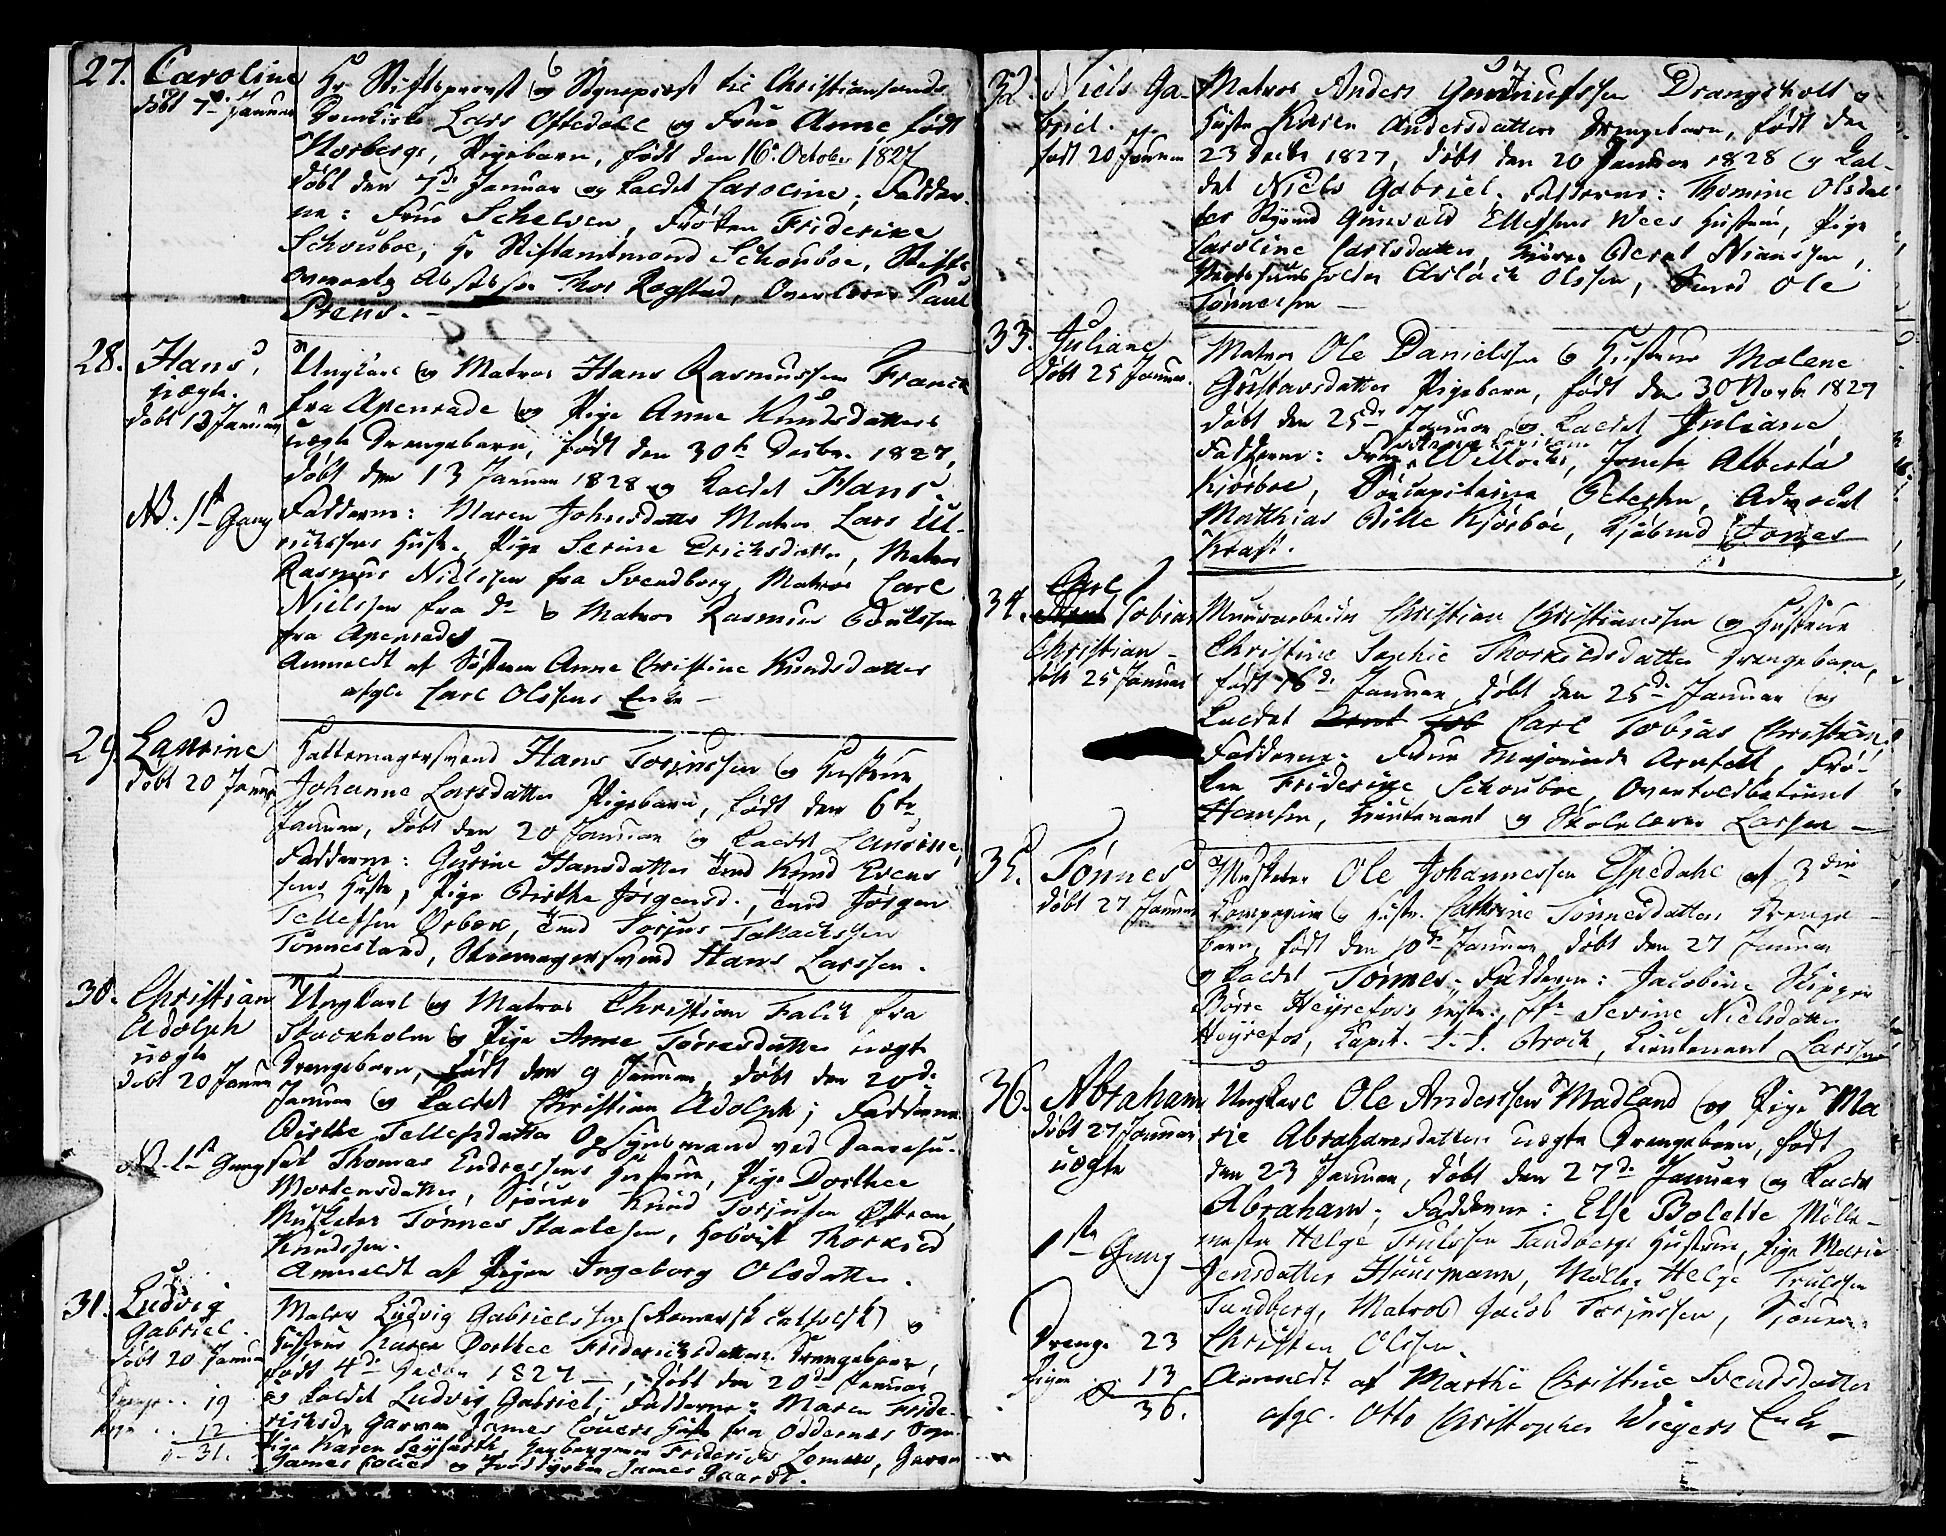 27. Caroline
døbt 7de Januar
Hr Stiftsprovst og Sogneprest til Christiansands
Domkirke Lars Oftedahl og Frue Anne født
Norbergs, Pigebarn, født den 16. October 1827
døbt den 7de Januar og kaldet Caroline; Fadder-
ne: Frue Schelven, Frøken Friderike
Schouboe, Hr Stiftamtmand Schouboe, Stifts
Thor Rogstad, Overlærer Paul
Preus. —
28. Hans,
uægte.
døbt 13 Januar
NB. 1ste Gang
Ungkarl og Matros Hans Rasmussen Franck
fra Apenrade og Pige Anne Knudsdatters
uægte Drengebarn, født den 30te Decbr. 1827,
døbt den 13 Januar 1828 og kaldet Hans.
Fadderne: Maren Johnsdatter Matros Lars Ul-
richsens Hustr. Pige Serine Ericksdatter, Matros
Rasmus Nielssen fra Svendborg, Matros Carl
Nielssen fra do og Matros Rasmus
fra Apenrade
Anmeldt af Søsteren Anne Christine Knudsdatter
afgl. Carl Olssens Enke —
29. Laurine
døbt 20 Januar
Hattemagersvend Hans Torjussen og Hustrue
Johanne Larsdatters Pigebarn, født den 6te
Januar, døbt den 20 Januar og kaldet Laurine,
Fadderne: Gurine Hansdatter Knud Evens
sens Hustr, Pige Birthe Jørgensd., Jørgen
Tellefsen Ørbek, Torjus Tallachssen
Tønnesland, Skomagersvend Hans Larssen.
30. Christian
Adolph
uægte
døbt 20 Januar
NB. 1ste Gang
Ungkarl og Matros Christian Falck fra
Stockholm og Pige Anne Tørresdatters uægte
Drengebarn, født den 9 Januar, døbt den 20de
Januar og kaldet Christian Adolph; Fadderne
Birthe Tellefsdatter Opsynsmand ved
Thomas Endressens Hustrue, Pige Dorthea
Mortensdatter, Knud Torjusen Østrem,
Musketer Tønnes Staalesen, Hoboist Thorkild
Knudssen.
Anmeldt af Pigen Ingeborg Olsdatter.
31. Ludvig
Gabriel.
døbt 20 Januar
Drenge .. 19
Piger .. 12
31.
Maler Ludvig Gabrielssen (Romersk catholsk) og
Hustrue Karen Dorthea Friderichsdatters Drengebarn,
født 4de Decbr 1827 —, døbt den 20de Januar
og kaldet Ludvig Gabriel; Fadderne: Maren Fride-
richsd. Garver James Couers Hustr fra Oddernes Sogn
Pige Karen Friderich Garver
James og James Gaardt.
32. Niels Ga-
briel.
født 20 Januar
Matros Anders Gunnufssen Drangsholt og
Hustr Karen Andersdatters Drengebarn, født den
23 Decbr 1827, døbt den 20 Januar 1828 og kal-
det Niels Gabriel. Fadderne: Thomine Olsdat-
ter Gunvald Ellefsens Wees Hustrue, Pige
Caroline Carlsdatter, Berent Nianssen,
Aslach Olssen, Ole
Tønnessen —
33. Juliane
døbt 25 Januar.
Matros Ole Danielssen og Hustrue Malene
Gustavsdatters Pigebarn, født den 30 Novbr 1827
døbt den 25de Januar og kaldet Juliane
Fadderne: Frue Willoch, Jomfr Alberta
Kjørboe, Petersen, Advocat
Matthias Bille Kjørboe, Tomas
Kraft.
34. Carl
Tobias
Christian —
døbt 25 Januar
Muurmester Christian Christianssen og Hustrue
Christine Sophie Thorkildsdatters Drengebarn,
født 6de Januar, døbt den 25de Januar og
kaldet Carl Tobias Christian;
Fadderne: Frue Majorinde Arnfelt, Frø-
ken Friderikke Schouboe, Overtoldbetient
Hansen, Lieutenant og Skolelærer Larsen —
35. Tønnes
døbt 27 Januar
Musketer Ole Johannessen Espedahl af 3die
Compagnie og Hustr. Cathrine Tønnesdatters Drenge-
barn, født den 10de Januar, døbt den 27 Januar
og kaldet Tønnes. Fadderne: Jacobine Skipper
Børre Heyrefos's Hustr., Jfr Serine Nielsdatter
Heyrefos, Capit. Broch, Lieutenant Larssen
36. Abraham
døbt 27 Januar
uægte
1ste Gang
Drenge 23
Piger .. 13
36.
Ungkarl Ole Anderssen Madland og Pige Ma
rie Abrahamsdatters uægte Drengebarn, født
den 23 Januar, døbt den 27de Januar og kaldet
Abraham; Fadderne: Else Bolette Mølle-
mester Helge Trulssen Tandbergs Hustrue, Pige Marie
Jensdatter Huusmann, Møller Helge Trulssen
Tandberg, Matros Jacob Torjussen,
Christen Olssen.
Anmeldt af Marthe Christine Svendsdatter
afgl. Otto Christopher Wiegers Enke —